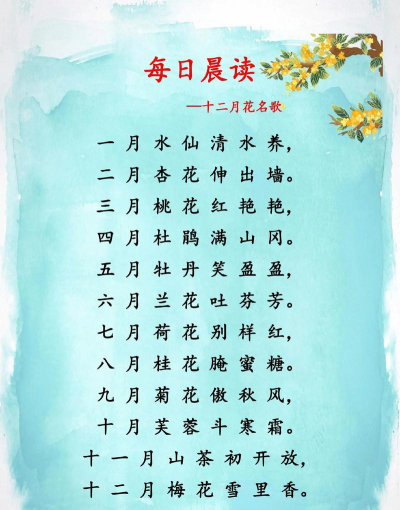 每日晨读
—十二月花名歌
一月水仙清水养，
二月杏花伸出墙。
三月桃花红艳艳，
四月杜鹃满山冈。
五月牡丹笑盈盈，
六月兰花吐芬芳。
七月荷花别样红，
八月桂花腌蜜糖。
九月菊花傲秋风，
十月芙蓉斗寒霜。
十一月山茶初开放，
十二月梅花雪里香。